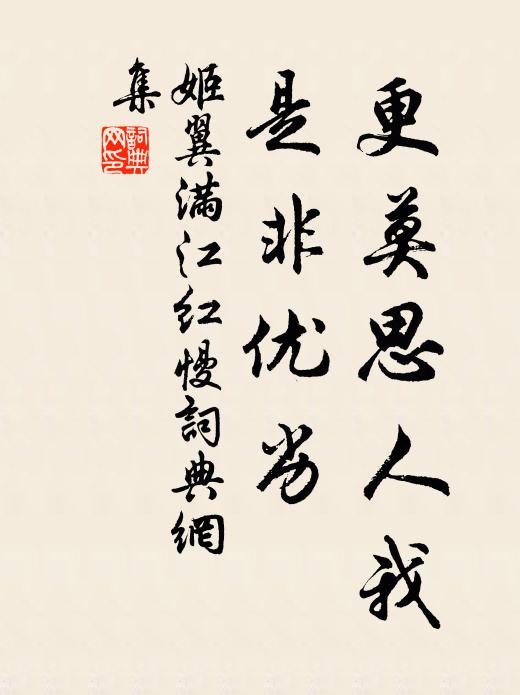 更莫思人我
是非优劣
姬翼满江红慢词典網
集
詞典
网印